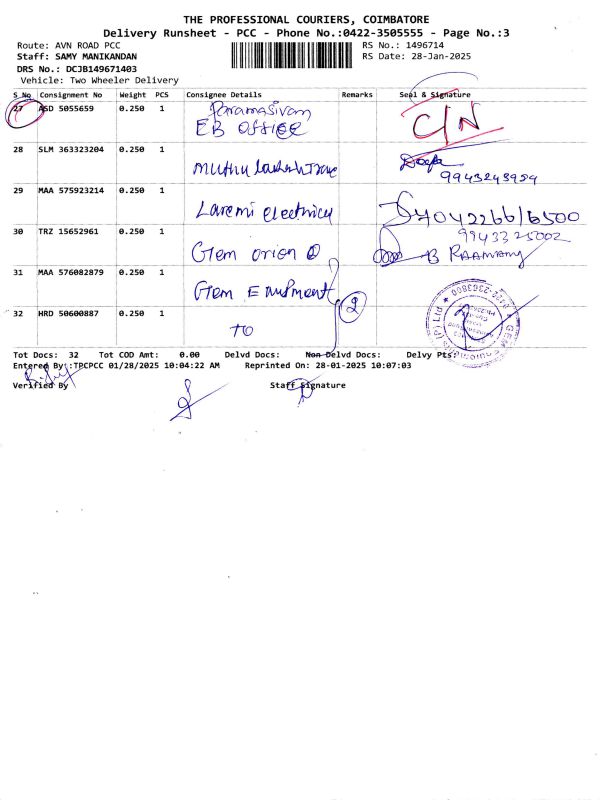 THE PROFESSIONAL COURIERS, COIMBATORE
Delivery Runsheet - PCC - Phone No.:0422-3505555 - Page No.:3
Route: AVN ROAD PCC
RS No.: 1496714
Staff: SAMY MANIKANDAN
RS Date: 28-Jan-2025
DRS No.: DCJB149671403
Vehicle: Two Wheeler Delivery
S No Consignment No Weight PCS Consignee Details Remarks Seal & Signature
27 ASD 5055659 0.250 1 Paramasivan
EB OFFICE C/N
28 SLM 363323204 0.250 1
29 MAA 575923214 0.250 1 Laxmi electrical
30 TRZ 15652961 0.250 1 Gem orion
9943325002
31 MAA 576082879 0.250 1 Gem
2
0422-2363800
32 HRD 50600887 0.250 1 TO
Tot Docs: 32 Tot COD Amt: 0.00 Delvd Docs: Non Delvd Docs: Delvy Pts:
Entered By:TPCPCC 01/28/2025 10:04:22 AM Reprinted On: 28-01-2025 10:07:03
Verified By Staff Signature